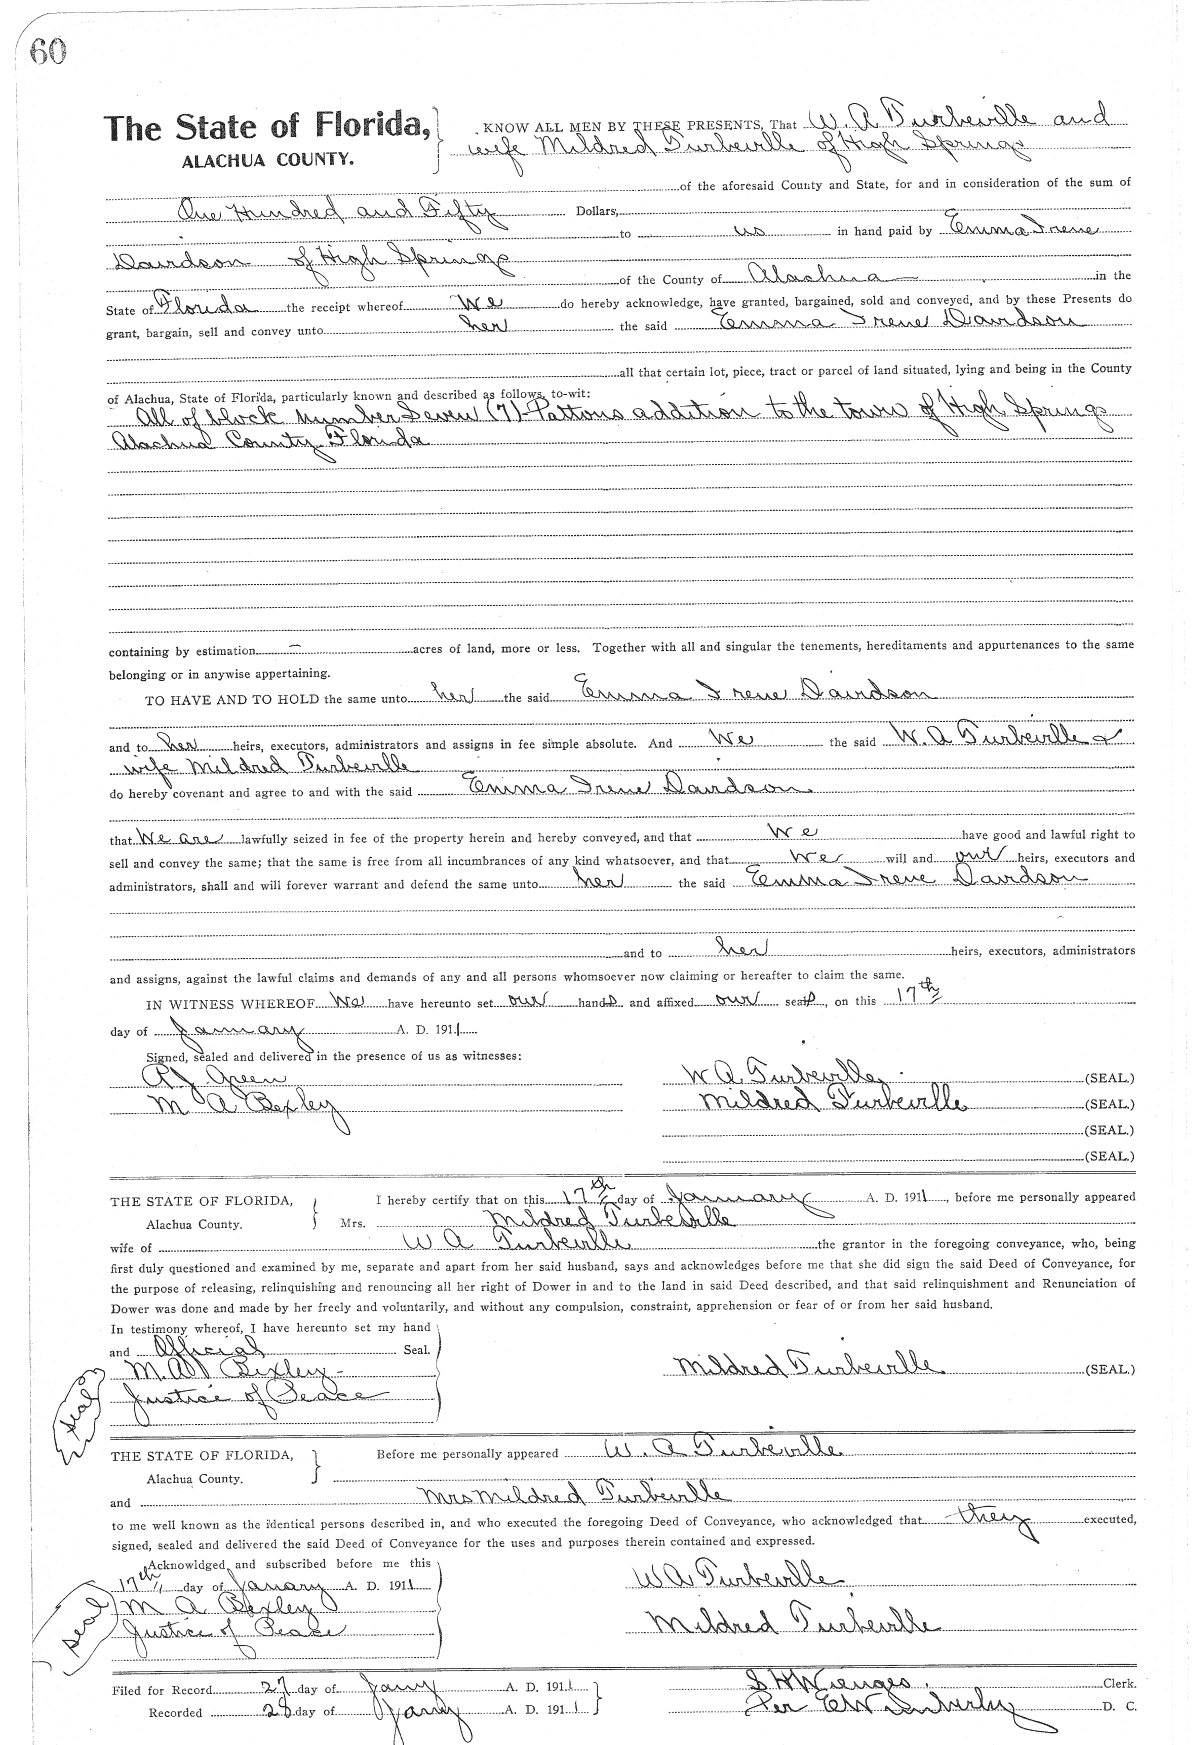 60
The State of Florida, KNOW ALL MEN BY THESE PRESENTS, That W. A Turbeville and
ALACHUA COUNTY. wife Mildred Turbeville of High Springs
of the aforesaid County and State, for and in consideration of the sum of
One Hundred and Fifty Dollars,
to us in hand paid by Emma Irene
Davidson of High Springs
of the County of Alachua in the
State of Florida the receipt whereof We do hereby acknowledge, have granted, bargained, sold and conveyed, and by these Presents do
grant, bargain, sell and convey unto her the said Emma Irene Davidson
all that certain lot, piece, tract or parcel of land situated, lying and being in the County
of Alachua, State of Florida, particularly known and described as follows, to-wit:
All of block number Seven (7) Pattons addition to the town of High Springs
Alachua County Florida
containing by estimation — acres of land, more or less. Together with all and singular the tenements, hereditaments and appurtenances to the same
belonging or in anywise appertaining.
TO HAVE AND TO HOLD the same unto her the said Emma Irene Davidson
and to her heirs, executors, administrators and assigns in fee simple absolute. And We the said W. A Turbeville &
wife Mildred Turbeville
do hereby covenant and agree to and with the said Emma Irene Davidson
that We are lawfully seized in fee of the property herein and hereby conveyed, and that We have good and lawful right to
sell and convey the same; that the same is free from all incumbrances of any kind whatsoever, and that We will and our heirs, executors and
administrators, shall and will forever warrant and defend the same unto her the said Emma Irene Davidson
and to her heirs, executors, administrators
and assigns, against the lawful claims and demands of any and all persons whomsoever now claiming or hereafter to claim the same.
IN WITNESS WHEREOF We have hereunto set our hands and affixed our seals, on this 17th
day of January A. D. 1911
Signed, sealed and delivered in the presence of us as witnesses:
R J Green W A Turbeville (SEAL.)
M A Bexley Mildred Turbeville (SEAL.)
(SEAL.)
(SEAL.)
THE STATE OF FLORIDA, I hereby certify that on this 17th day of January A. D. 1911, before me personally appeared
Alachua County. Mrs. Mildred Turbeville
wife of W A Turbeville the grantor in the foregoing conveyance, who, being
first duly questioned and examined by me, separate and apart from her said husband, says and acknowledges before me that she did sign the said Deed of Conveyance, for
the purpose of releasing, relinquishing and renouncing all her right of Dower in and to the land in said Deed described, and that said relinquishment and Renunciation of
Dower was done and made by her freely and voluntarily, and without any compulsion, constraint, apprehension or fear of or from her said husband.
In testimony whereof, I have hereunto set my hand
and Official Seal.
M. A. Bexley Mildred Turbeville (SEAL.)
Justice of Peace
Seal
THE STATE OF FLORIDA, Before me personally appeared W. A Turbeville
Alachua County.
and Mrs Mildred Turbeville
to me well known as the identical persons described in, and who executed the foregoing Deed of Conveyance, who acknowledged that they executed,
signed, sealed and delivered the said Deed of Conveyance for the uses and purposes therein contained and expressed.
Acknowldged and subscribed before me this
17th day of January A. D. 1911 W A Turbeville
M A Bexley
Justice of Peace Mildred Turbeville
Seal
Filed for Record 27 day of Jany A. D. 1911 S H Wienges Clerk.
Recorded 28 day of Jany A. D. 1911 Per E W D. C.